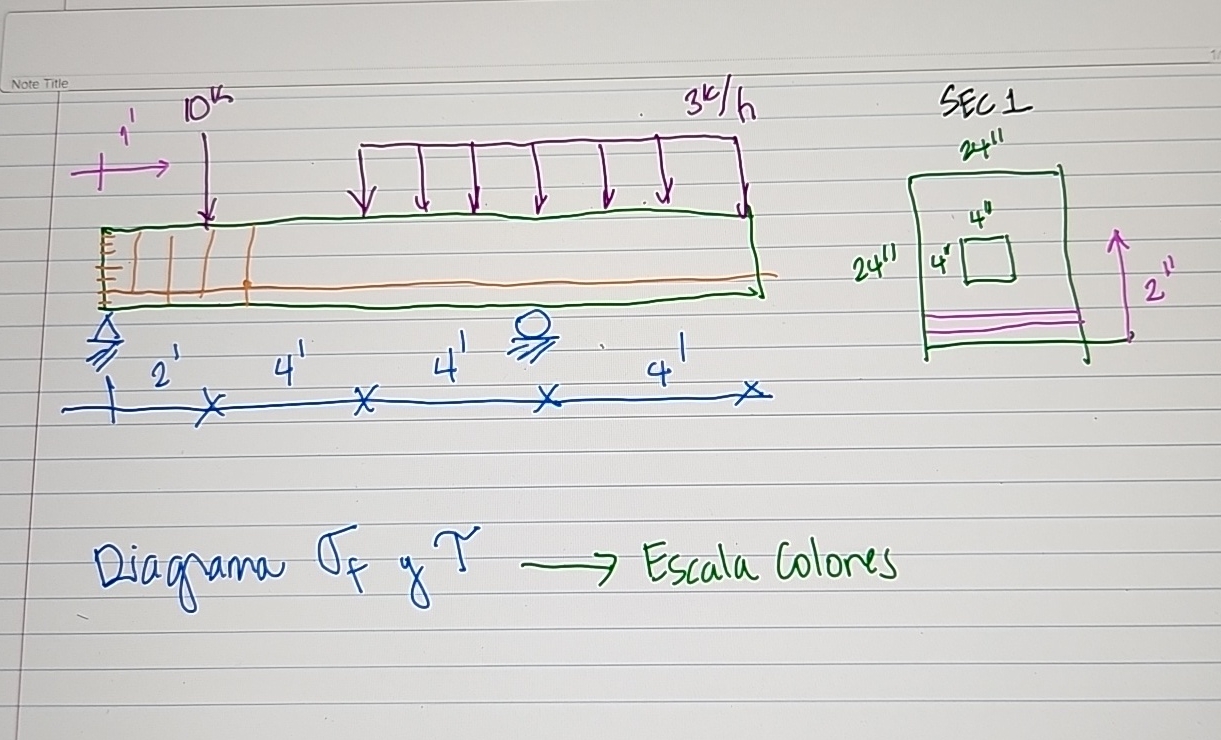 Note Title
1'
10ᵏ
3ᵏ/h
SEC 1
24"
4"
24"
4"
2"
2'
4'
4'
4'
Diagrama σf y τ → Escala Colores